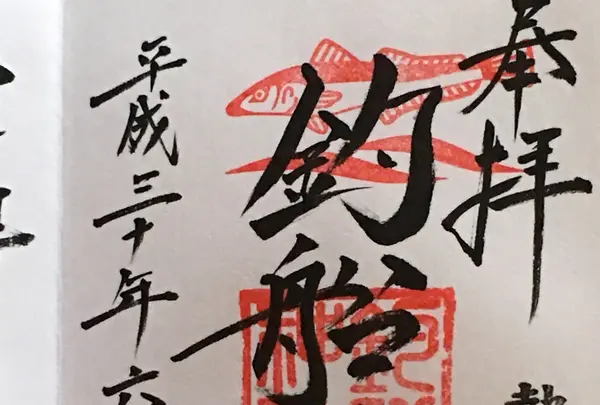 奉拝
釣船
平成三十年六